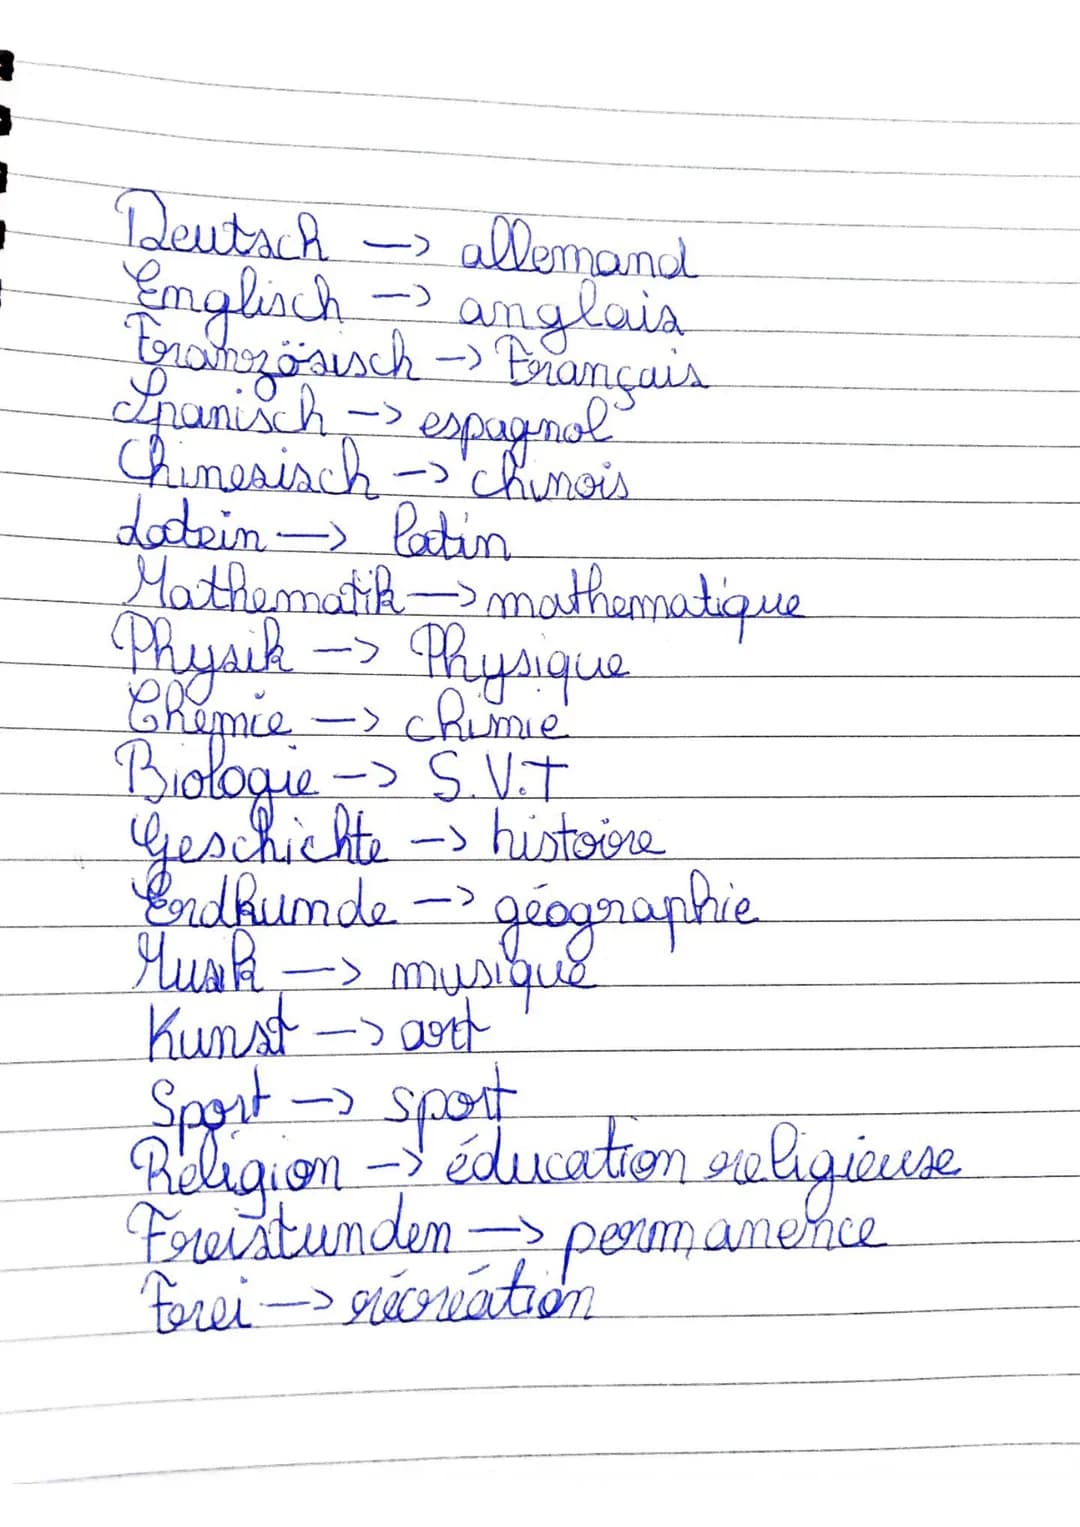 Deutsch -> allemand
Englisch -> anglais
Französisch -> Français
Spanisch -> espagnol
Chinesisch -> chinois
Latein -> latin
Mathematik -> mathematique
Physik -> Physique
Chemie -> chimie
Biologie -> S.V.T
Geschichte -> histoire
Erdkunde -> géographie
Musik -> musique
Kunst -> art
Sport -> sport
Religion -> éducation religieuse
Freistunden -> permanence
Frei -> récréation